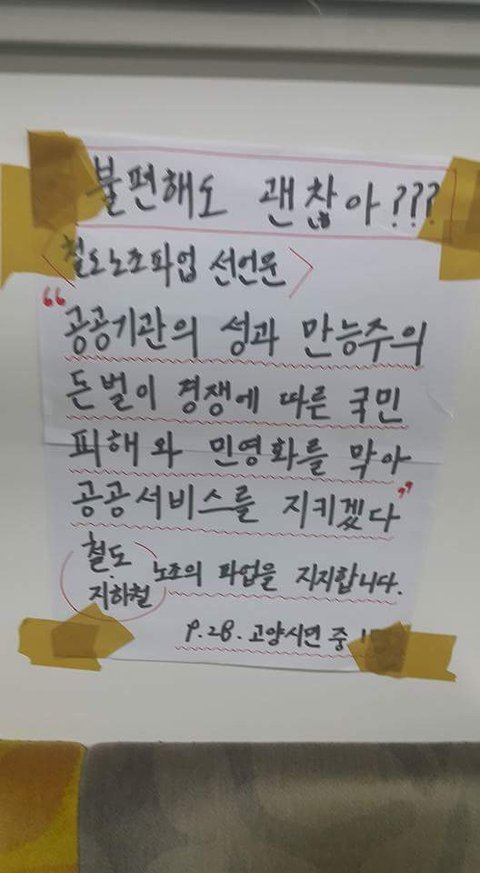 불편해도 괜찮아???
<철도노조파업 선언문>
“공공기관의 성과 만능주의
돈벌이 경쟁에 따른 국민
피해와 민영화를 막아
공공서비스를 지키겠다”
철도
지하철 노조의 파업을 지지합니다.
9.28. 고양시민 중